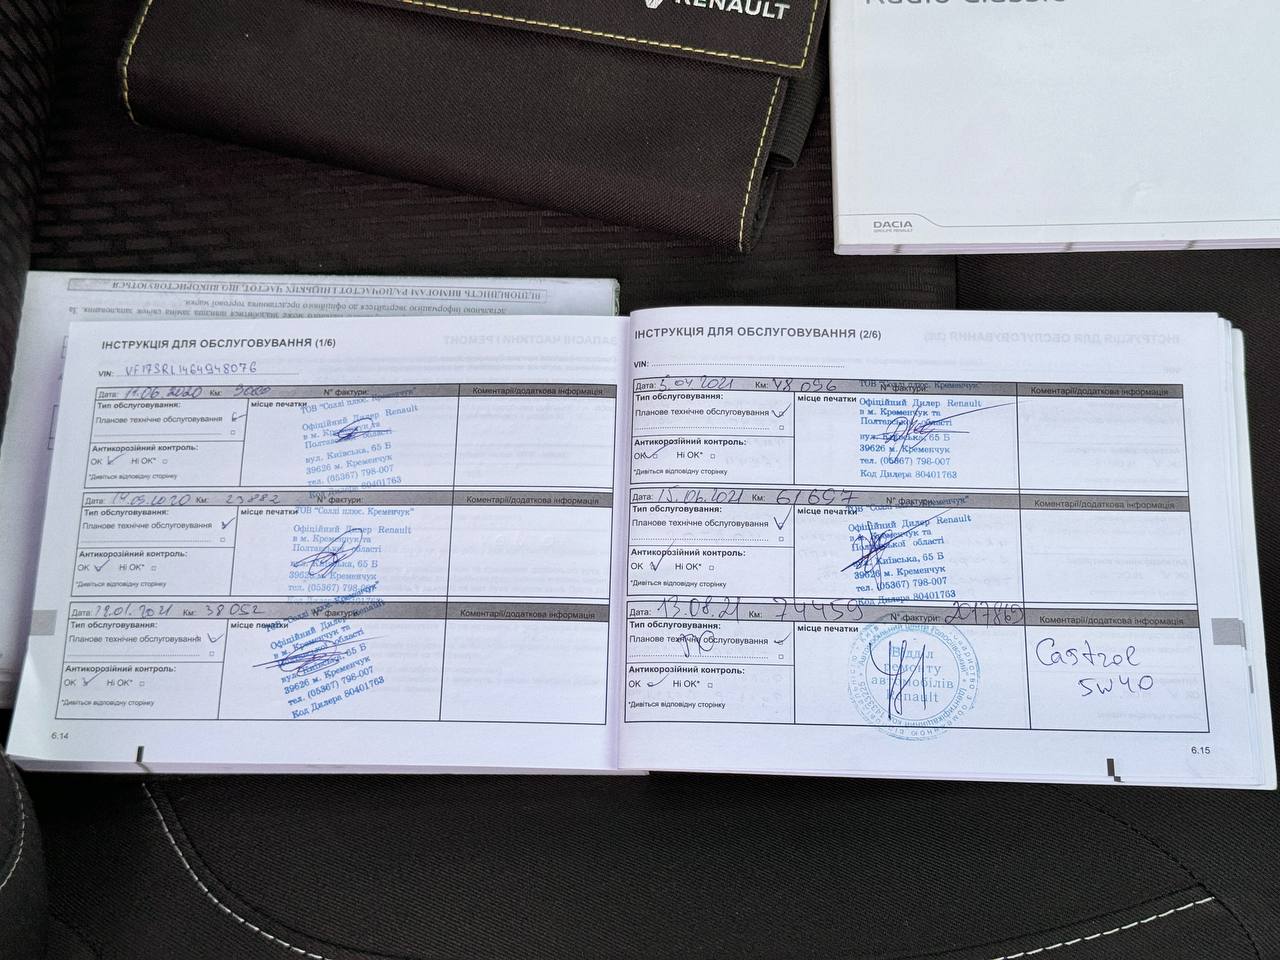 RENAULT
Radio Classic
DACIA
GROUPE RENAULT
ВІДПОВІДНІСТЬ ВИМОГАМ РАДІОЧАСТОТ І НИЗЬКИХ ЧАСТОТ, ЩО ВИКОРИСТОВУЮТЬСЯ
ІНСТРУКЦІЯ ДЛЯ ОБСЛУГОВУВАННЯ (1/6)
VIN: VF17SRL1464948076
Дата: 11.06.2020 Км: 9000 N° фактури: Коментарі/додаткова інформація
Тип обслуговування:
Планове технічне обслуговування
місце печатки
ТОВ "Соллі плюс. Кременчук"
Офіційний Дилер Renault
в м. Кременчук та
Полтавської області
вул. Київська, 65 Б
39626 м. Кременчук
тел. (05367) 798-007
Код Дилера 80401763
Антикорозійний контроль:
OK Ні OK*
*Дивіться відповідну сторінку
Дата: 14.09.2020 Км: 23882 N° фактури: Коментарі/додаткова інформація
Тип обслуговування:
Планове технічне обслуговування
місце печатки
ТОВ "Соллі плюс. Кременчук"
Офіційний Дилер Renault
в м. Кременчук та
Полтавської області
вул. Київська, 65 Б
39626 м. Кременчук
тел. (05367) 798-007
Антикорозійний контроль:
OK Ні OK*
*Дивіться відповідну сторінку
Дата: 19.01.2021 Км: 38052 N° фактури: Коментарі/додаткова інформація
Тип обслуговування:
Планове технічне обслуговування
місце печатки
Офіційний Дилер Renault
в м. Кременчук та
Полтавської області
вул. Київська, 65 Б
39626 м. Кременчук
тел. (05367) 798-007
Код Дилера 80401763
Антикорозійний контроль:
OK Ні OK*
*Дивіться відповідну сторінку
6.14
ІНСТРУКЦІЯ ДЛЯ ОБСЛУГОВУВАННЯ (2/6)
VIN:
Дата: 5.04 2021 Км: 48 096 Коментарі/додаткова інформація
Тип обслуговування:
Планове технічне обслуговування
місце печатки
ТОВ "Соллі плюс. Кременчук"
Офіційний Дилер Renault
в м. Кременчук та
Полтавської області
вул. Київська, 65 Б
39626 м. Кременчук
тел. (05367) 798-007
Код Дилера 80401763
Антикорозійний контроль:
OK Ні OK*
*Дивіться відповідну сторінку
Дата: 15.06.2021 Км: 61697 N° фактури: Коментарі/додаткова інформація
Тип обслуговування:
Планове технічне обслуговування
місце печатки
ТОВ "Соллі плюс. Кременчук"
Офіційний Дилер Renault
в м. Кременчук та
Полтавської області
вул. Київська, 65 Б
39626 м. Кременчук
тел. (05367) 798-007
Код Дилера 80401763
Антикорозійний контроль:
OK Ні OK*
*Дивіться відповідну сторінку
Дата: 13.08.21 Км: 74459 N° фактури: 2017869 Коментарі/додаткова інформація
Тип обслуговування:
Планове технічне обслуговування
ТО
місце печатки
Відділ
ремонту
автомобілів
Renault
Castrol
5W40
Антикорозійний контроль:
OK Ні OK*
*Дивіться відповідну сторінку
6.15